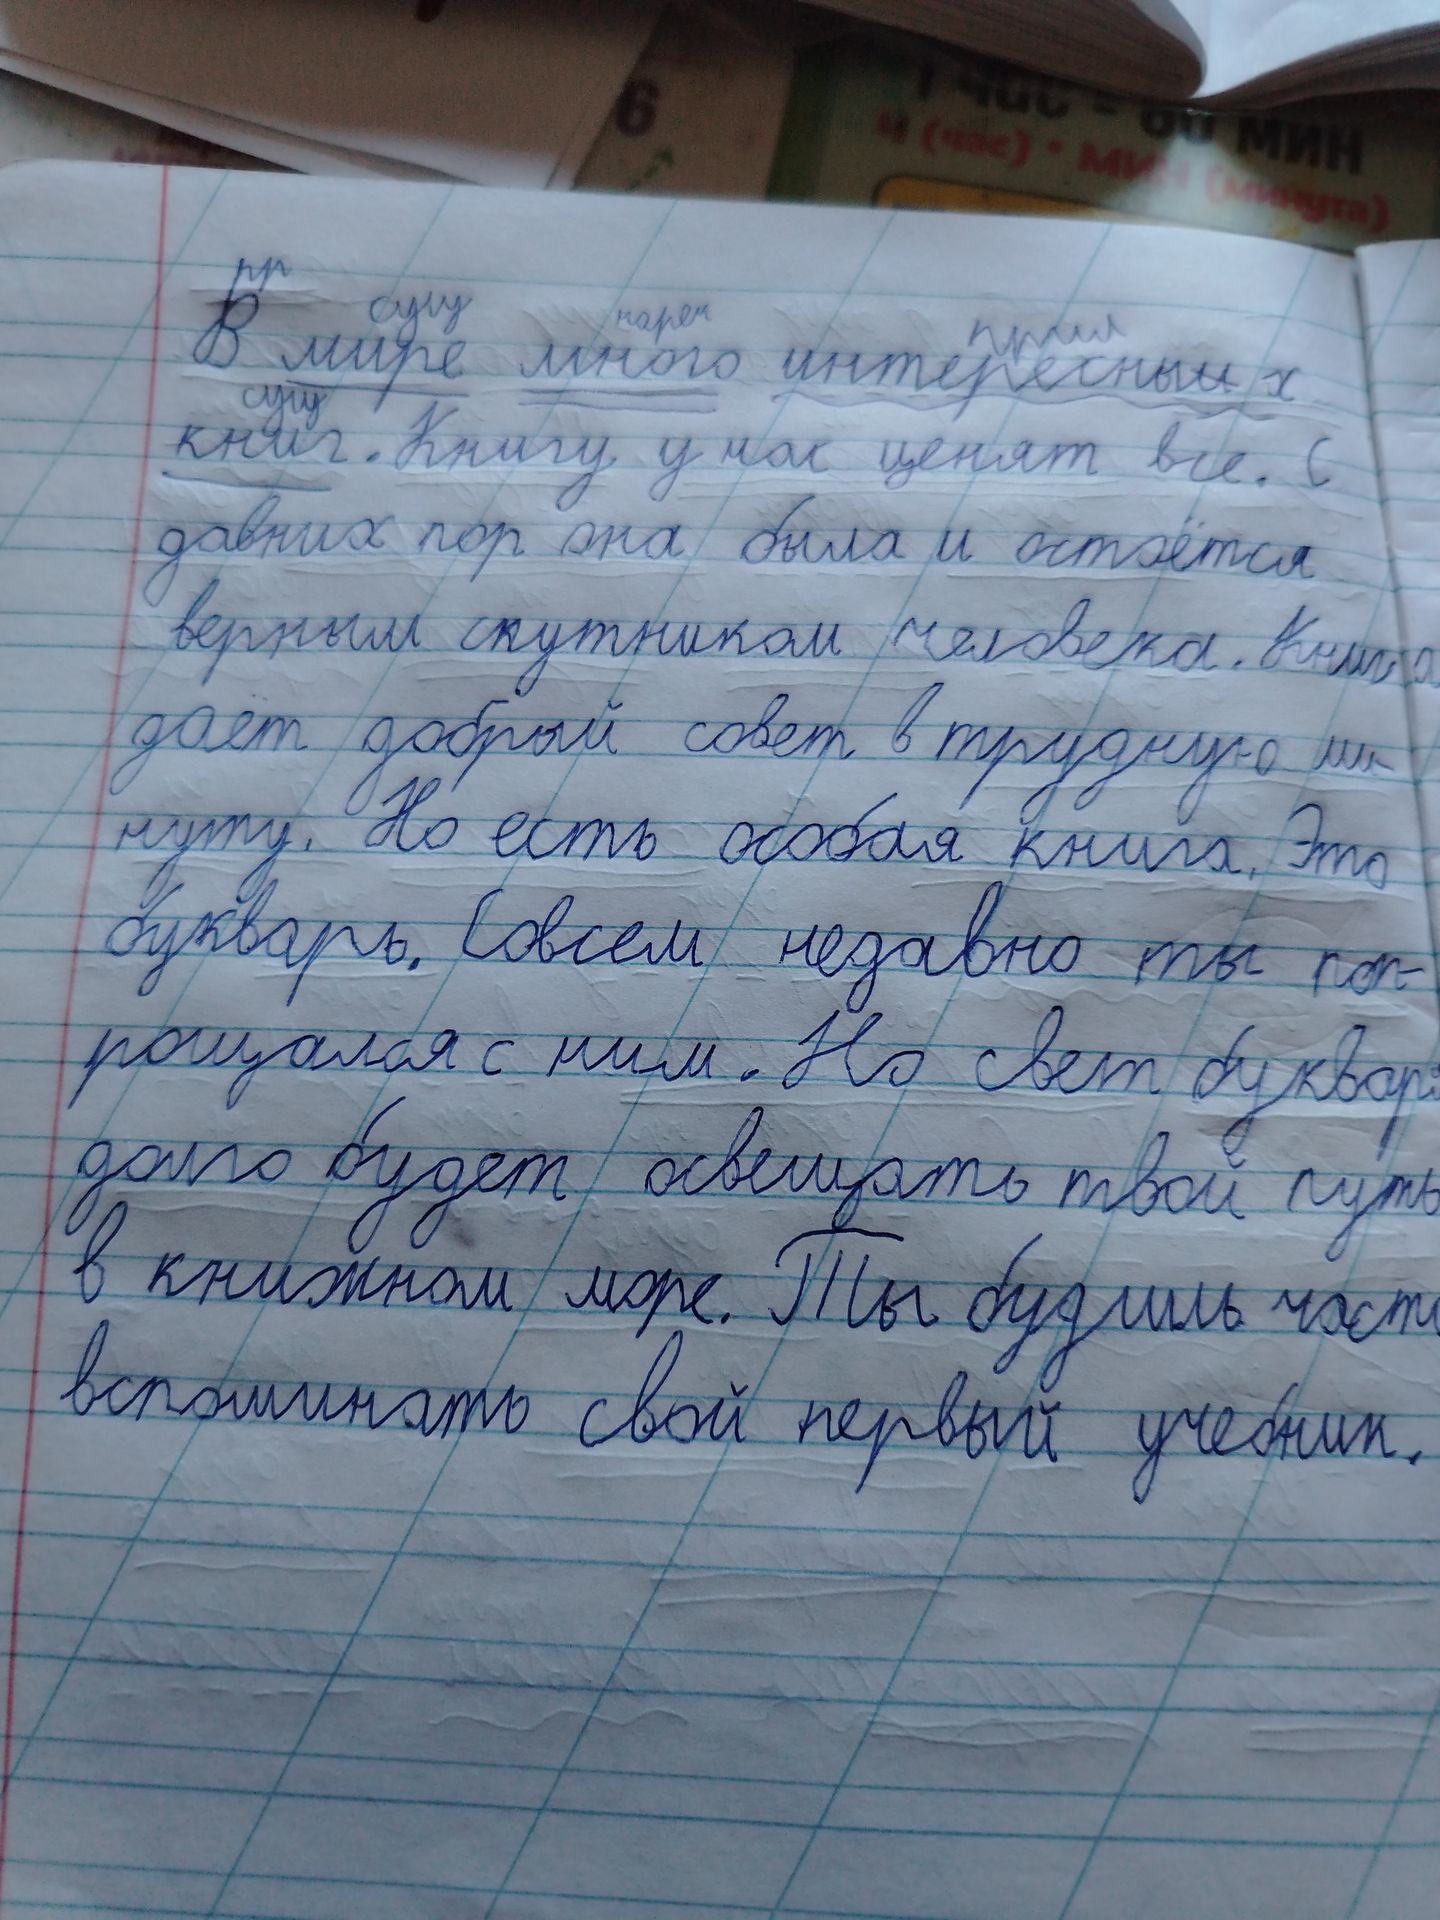 6
1 час = 60 мин
ч (час) • мин (минута)
пр
сущ нареч прил
В мире много интересных
сущ
книг. Книгу у нас ценят все. С
давних пор она была и остаётся
верным скутником человека. Книга
даёт добрый совет в трудную ми-
нуту. Но есть особая книга. Это
букварь. Совсем недавно ты поп-
рощался с ним. Но свет букваря
долго будет освещать твой путь
в книжном море. Ты будишь часто
вспоминать свой первый учебник.